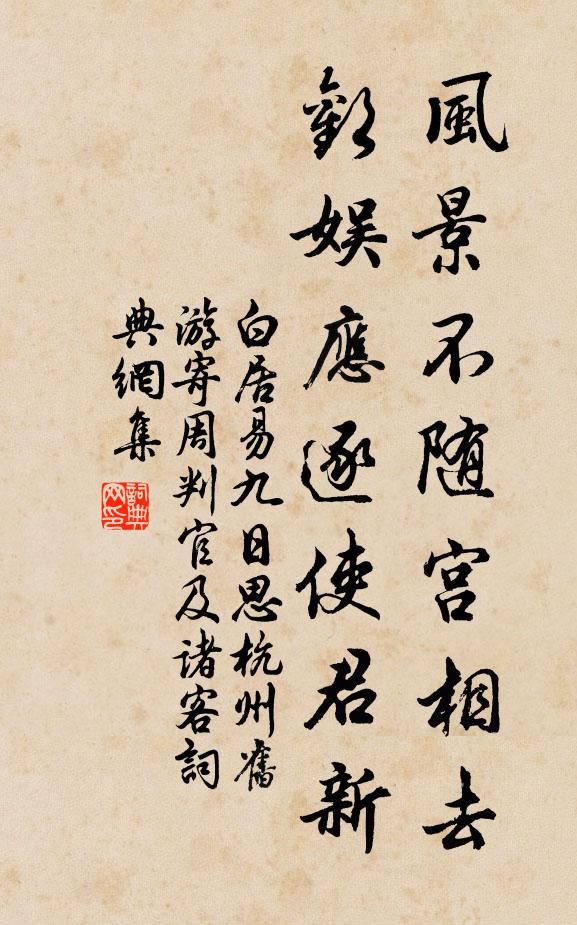 風景不随宫相去
歡娱應逐使君新
白居易九日思杭州舊
游寄周判官及诸客詞
典網集
詞典网印